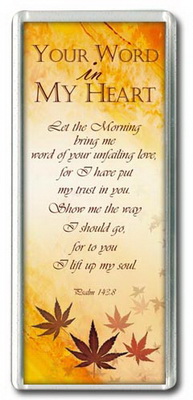 YOUR WORD
in
MY HEART
Let the Morning
bring me
word of your unfailing love,
for I have put
my trust in you.
Show me the way
I should go,
for to you
I lift up my soul.
Psalm 143:8